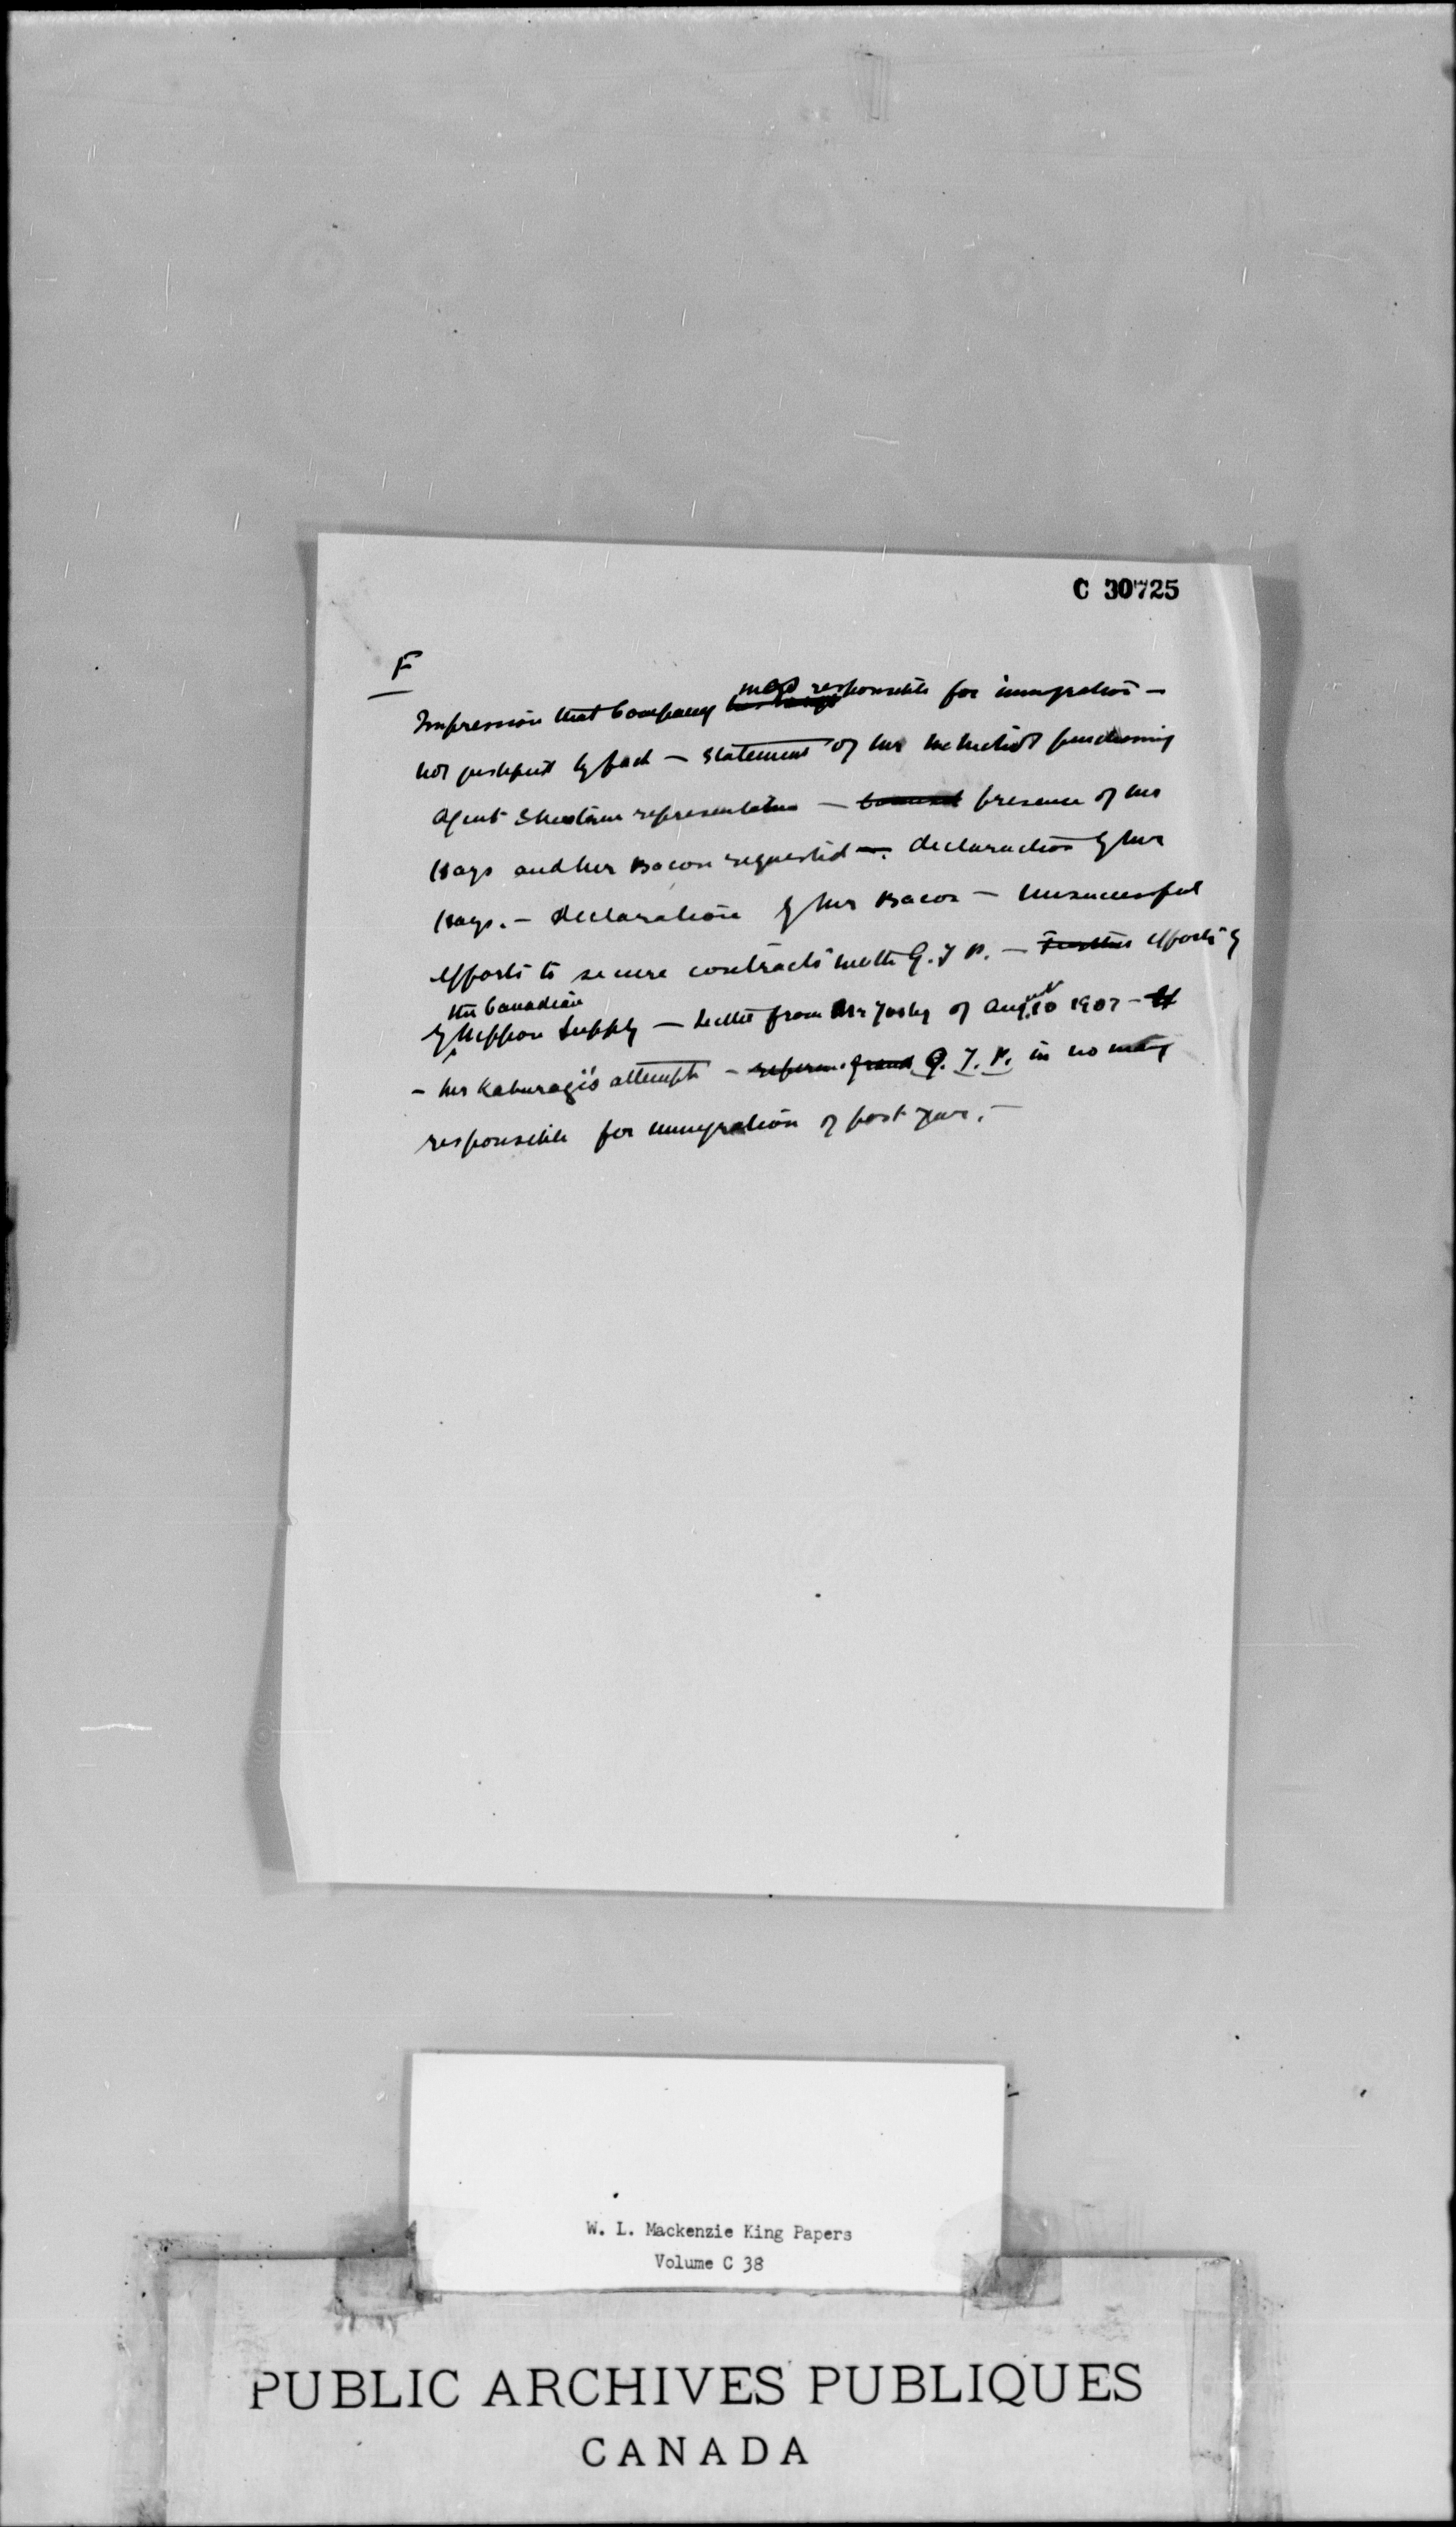 C 30725
F
Impression that Company responsible for immigration —
not justified by fact — Statement of Mr purchasing
Agent — presence of Mr
Hays and Mr Bacon requested — declaration by Mr
Hays. — declaration by Mr Bacon — Unsuccessful
efforts to secure contracts with G. T. P. — Further efforts by
the Canadian
by Nippon Supply — Letter from Mr Yoshy of Aug. 20 1907 —
— Mr Kaburagi's attempt — G. T. P. in no way
responsible for immigration of past year. —
W. L. Mackenzie King Papers
Volume C 38
PUBLIC ARCHIVES PUBLIQUES
CANADA